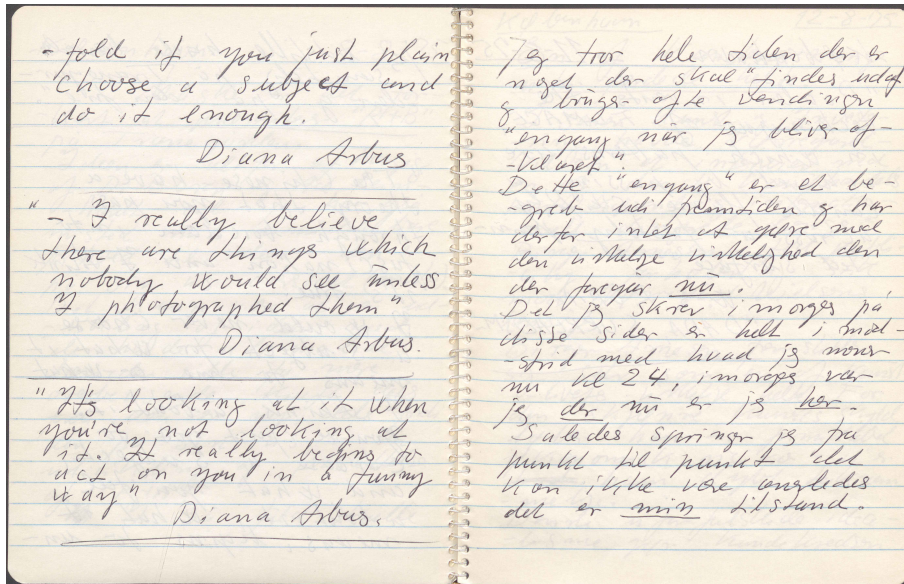 - told if you just plain
choose a subject and
do it enough.
Diana Arbus
"- I really believe
there are things which
nobody would see unless
I photographed them"
Diana Arbus.
"It's looking at it when
you're not looking at
it. It really begins to
act on you in a funny
way"
Diana Arbus.
København 12-8-95
Jeg tror hele tiden der er
noget der skal "findes udaf
og bruger ofte vendingen
"engang når jeg bliver af-
-klaret".
Dette "engang" er et be-
-greb udi fremtiden og har
derfor intet at gøre med
den virkelige virkelighed den
der foregår nu.
Det jeg skrev i morges på
disse sider er helt i mod-
-strid med hvad jeg mener
nu kl 24, i morges var
jeg der nu er jeg her.
Således springer jeg fra
punkt til punkt det
kan ikke være angledes
det er min tilstand.